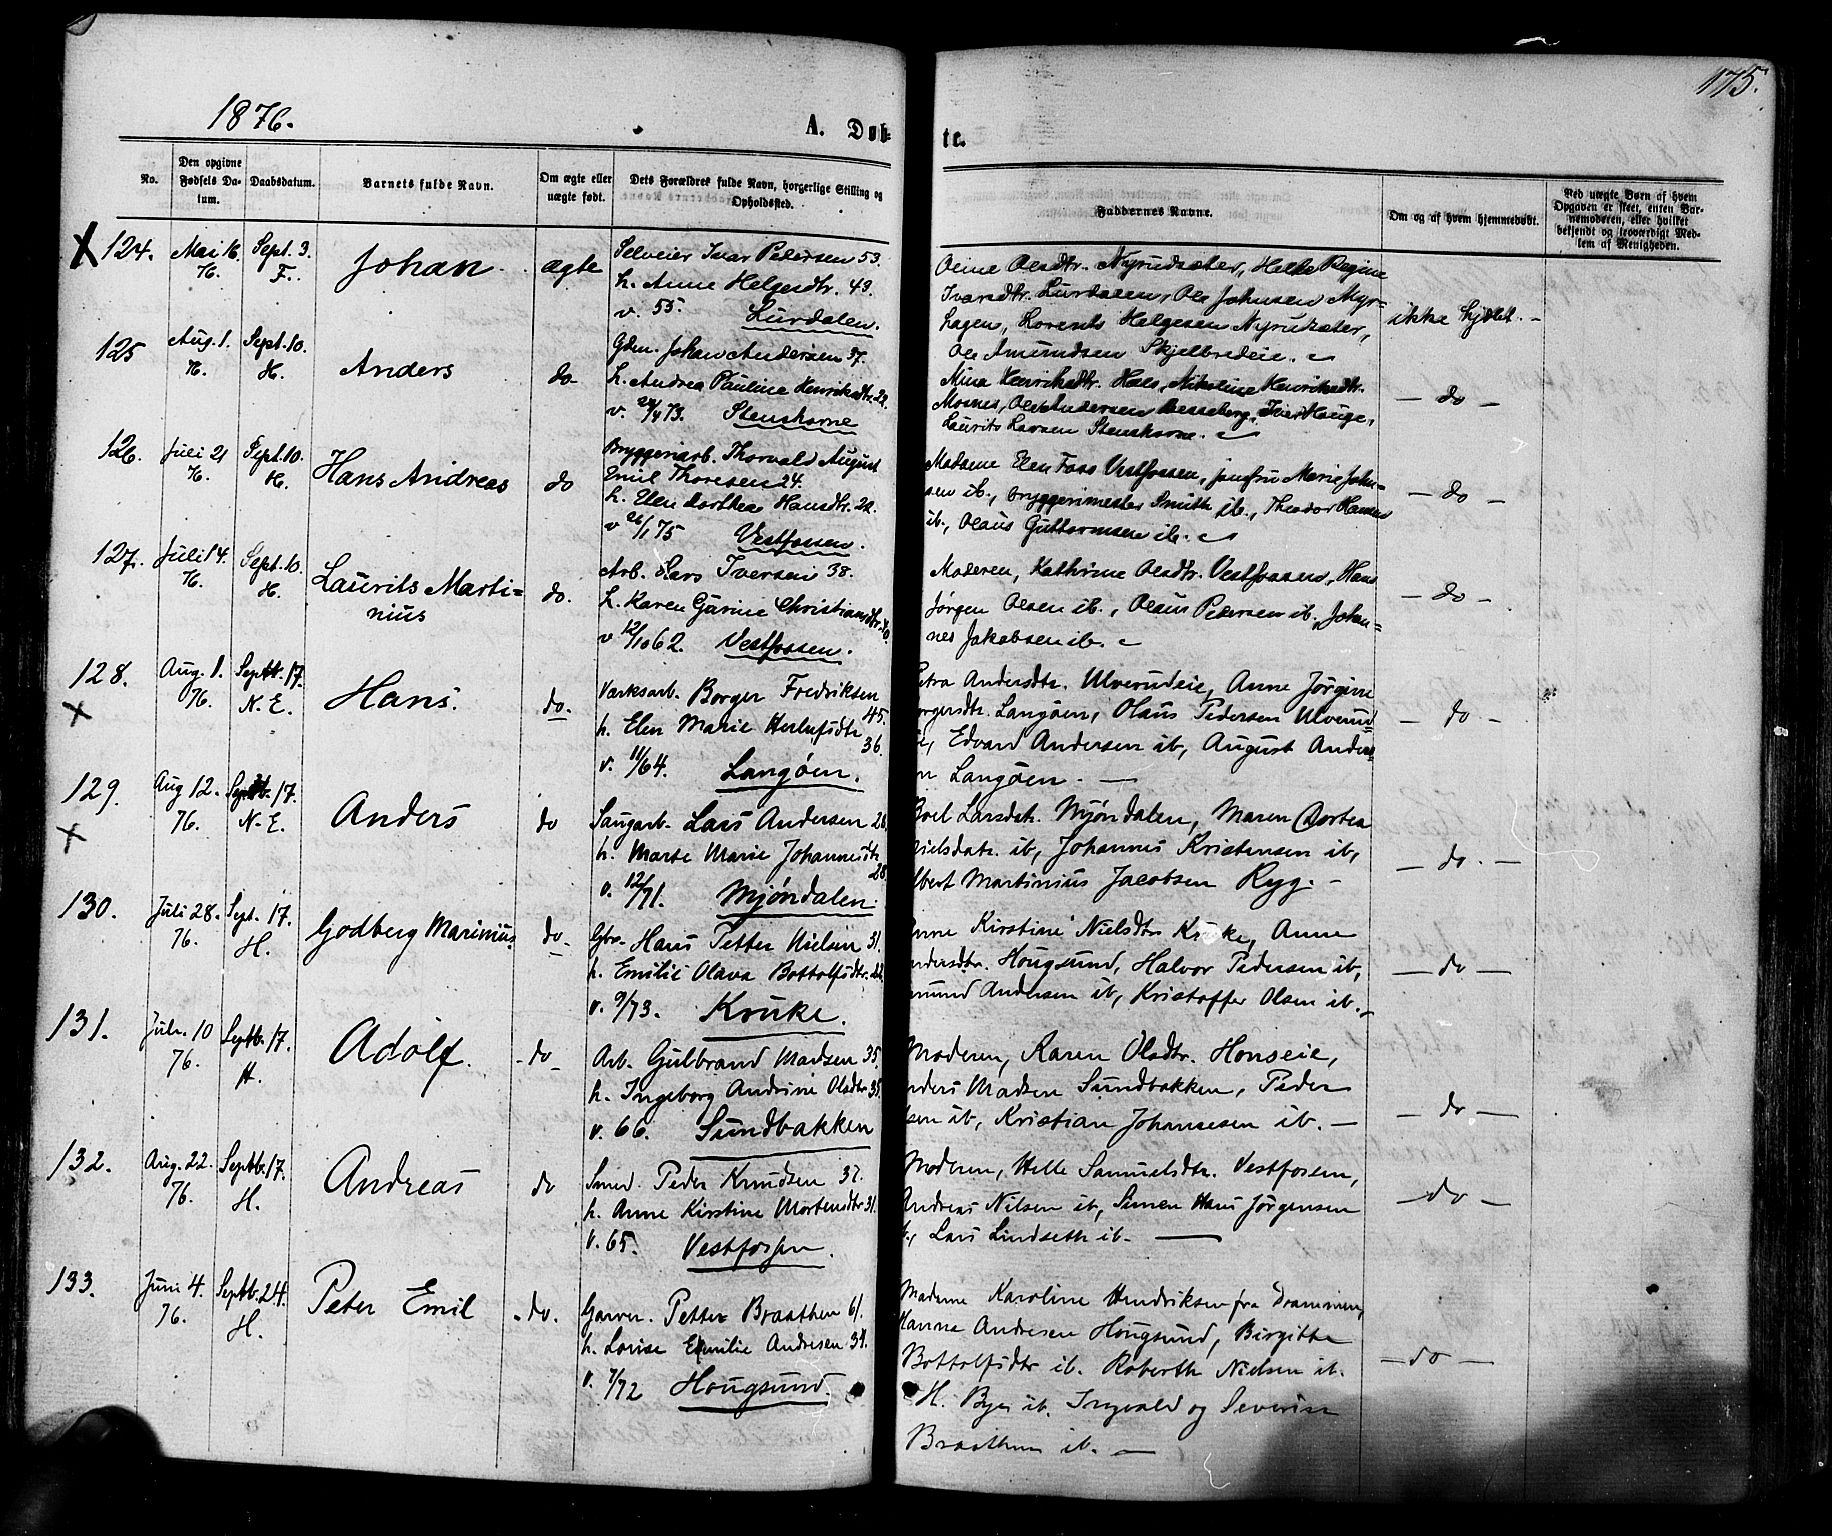 1876.
A. Døb-
te.
175.
No.
Den opgivne Fødsels Datum.
Daabsdatum.
Barnets fulde Navn.
Om ægte eller uægte født.
Dets Forældres fulde Navn, borgerlige Stilling og Opholdssted.
Faddernes Navne.
Om og af hvem hjemmedøbt.
Ved uægte Børn af hvem Opgaven er skeet, enten Barnemoderen, eller hvilket bekjendt og troværdigt Medlem af Menigheden.
124.
Mai 16.
76.
Sept. 3.
F.
Johan
ægte
Selveier Ivar Pedersen 53.
h. Anne Helgesdtr. 43.
v. 55. Lurdalen.
Olsdtr. Nyrudsæter, Helle Regine
Ivarsdtr. Lurdalen, Ole Johnsen Myr-
hagen, Lorents Helgesen Nyrudsæter,
Ole Amundsen Skjelbredeie.
ikke hjdbt. -
125
Aug. 1.
76.
Sept. 10.
H.
Anders
do-
Gdm. Johan Andersen 37.
h. Andrea Pauline Henriksdtr. 22.
v. 24/4 73. Stenshorne
Mina Henriksdtr. Hals, Nikoline Henriksdtr.
Moenes, Ole Andersen Besseberg, Iver Hauge,
Laurits Larsen Stenshorne.
- do -
126.
Juli 21
76.
Sept. 10.
H.
Hans Andreas
do
Bryggeriarb. Thorvald August
Emil Thoresen 24.
h. Elen Dorthea Hansdtr. 22.
v 26/1 75 Vestfossen.
Madame Elen Foss Vestfossen, jomfru Marie John-
sen ib., bryggerimester Smith ib., Theodor Hansen
ib., Olaus Guttormsen ib.
- do -
127.
Juli 14.
76.
Sept. 10.
H.
Laurits Marti-
nius
do.
Arb. Lars Iversen 38.
h. Karen Gurine Christiansdtr. 40.
v 12/10 62. Vestfossen.
Moderen, Kathrine Olsdtr. Vestfossen, Hans
Jørgen Olsen ib., Olaus Pedersen ib., Johan-
nes Jakobsen ib.
- do -
128.
Aug. 1.
76.
Septb. 17.
N. E.
Hans.
do.
Værksarb. Borger Fredriksen
45.
h. Elen Marie Herlufsdtr
36.
v. 11/64. Langøen.
etra Andersdtr. Ulverudeie, Anne Jørgine
orgersdtr. Langøen, Olaus Pedersen Ulverud-
ie, Edvard Andersen ib, August Anders-
n Langøen. -
- do -
129.
Aug 12.
76.
Septb. 17.
N. E.
Anders
do
Saugarb. Lars Andersen 28.
h. Marte Marie Johannesdtr
28.
v. 12/71. Mjøndalen.
Boel Larsdtr. Mjøndalen, Maren Dortea
Nielsdatr. ib, Johannes Kristensen ib,
lbert Martinius Jacobsen Ryg. -
- do. -
130.
Juli 28.
76.
Sept. 17.
H.
Godberg Marinius.
do.
Gbr. Hans Petter Nielsen 31.
h. Emilie Olava Bottolfsdtr. 22.
v. 9/73. Kruke.
nne Kirstine Nielsdtr Kruke, Anne
ndersdtr. Hougsund, Halvor Pedersen ib,
mund Andersen ib, Kristoffer Olsen ib.
- do -
131.
10
76.
Septb. 17.
H.
Adolf.
- do -
Arb. Gulbrand Madsen 35.
h. Ingeborg Andrine Olsdtr 35.
v. 66. Sundbakken
Moderen, Karen Olsdtr. Honseie,
nders Madsen Sundbakken, Peder
sen ib, Kristian Johannesen ib. -
- do -
132.
Aug. 22.
76.
Septb. 17.
H.
Andreas
do
Smed. Peder Knudsen 37.
h. Anne Kirstine Mortensdtr 31.
v. 65. Vestfossen.
Moderen, Helle Samuelsdtr. Vestfossen,
Andreas Nilsen ib, Simen Hans Jørgensen
b, Lars Lindseth ib. -
- do -
133.
Juni 4.
76.
Septb. 24.
H.
Peter Emil
- do.
Garver. Petter Braathen 61.
h. Lovise Emilie Andresen 34.
v. 7/72 Hougsund.
Madame Karoline Hendriksen fra Drammen,
Hanna Andresen Hougsund, Birgitte
Bottolfsdtr ib. Roberth Nielsen ib.
H. Bye ib. Ingvald og Severine
Braathen ib. -
- do -